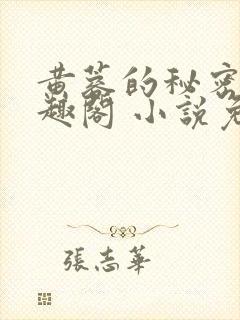 黄蓉的秘密
趣閣 小說免
張志華